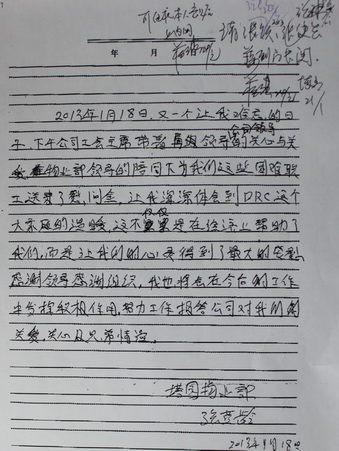 可征求本人意见后
年 月
2013年1月18日,又一个让我难忘的日
子,下午公司工会主席带着公司领导的关心与
关爱在物业部领导的陪同下为我们这些困难职
工送来了慰问金,让我深深体会到DRC这个
大家庭的温暖,这不仅仅是在经济上帮助了
我们,而是让我们的心灵得到了最大的安慰
感谢领导感谢组织,我也将会在今后的工作
中发挥积极作用,努力工作报答公司对我们的
关爱,关心及兄弟情谊。
塔园物业部
2013年1月18日